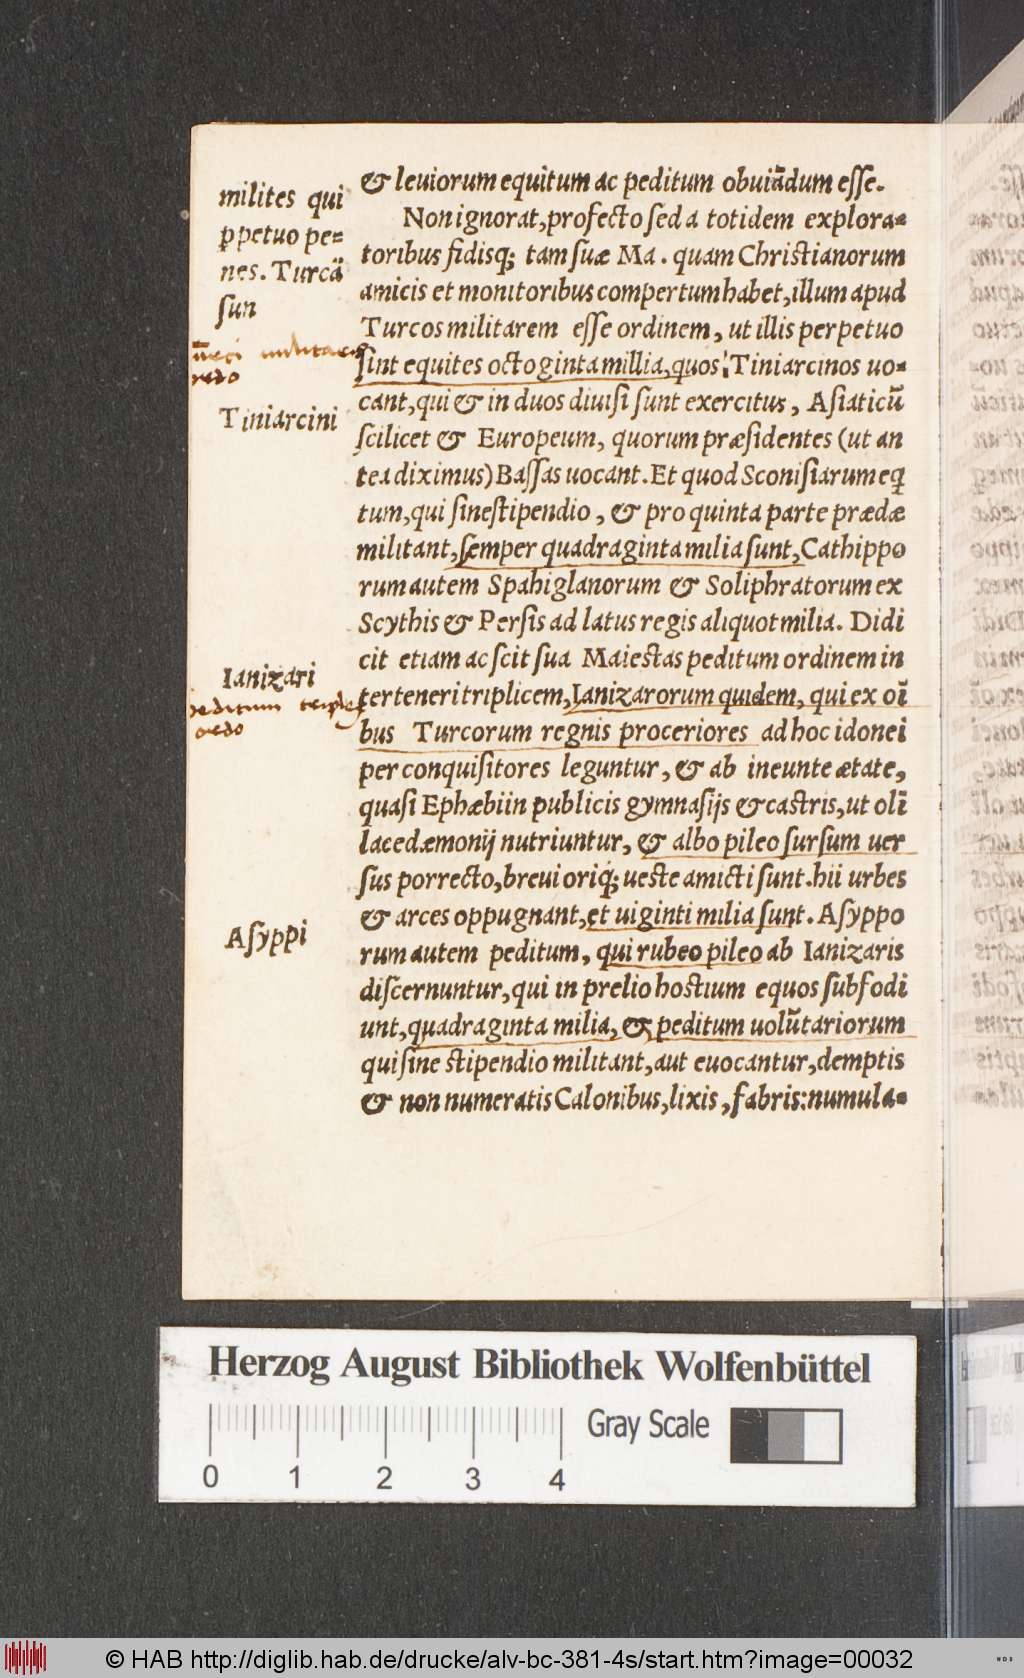 & leuiorum equitum ac peditum obuiãdum esse.
Non ignorat, profecto sed a totidem explora=
toribus fidisq; tam suæ Ma. quam Christianorum
amicis et monitoribus compertum habet, illum apud
Turcos militarem esse ordinem, ut illis perpetuo
sint equites octoginta millia, quos Tiniarcinos uo=
cant, qui & in duos diuisi sunt exercitus, Asiaticũ
scilicet & Europeum, quorum præsidentes (ut an
tea diximus) Bassas uocant. Et quod Sconisiarum eq̃
tum, qui sine stipendio, & pro quinta parte prædæ
militant, semper quadraginta milia sunt, Cathippo
rum autem Spahiglanorum & Soliphratorum ex
Scythis & Persis ad latus regis aliquot milia. Didi
cit etiam ac scit sua Maiestas peditum ordinem in
ter teneri triplicem, Ianizarorum quidem, qui ex oĩ
bus Turcorum regnis proceriores ad hoc idonei
per conquisitores leguntur, & ab ineunte ætate,
quasi Ephæbi in publicis gymnasijs & castris, ut olĩ
lacedæmonij nutriuntur, & albo pileo sursum uer
sus porrecto, breuiori q́; ueste amicti sunt. hii urbes
& arces oppugnant, et uiginti milia sunt. Asyppo
rum autem peditum, qui rubeo pileo ab Ianizaris
discernuntur, qui in prelio hostium equos subfodi
unt, quadraginta milia, & peditum uolũtariorum
qui sine stipendio militant, aut euocantur, demptis
& non numeratis Calonibus, lixis, fabris: numula=
milites qui
ꝑpetuo pe=
nes. Turcã
sun
militaris
redo
Tiniarcini
Ianizari
peditum triplex
ordo
Asyppi
Herzog August Bibliothek Wolfenbüttel
Gray Scale
0 1 2 3 4
© HAB http://diglib.hab.de/drucke/alv-bc-381-4s/start.htm?image=00032